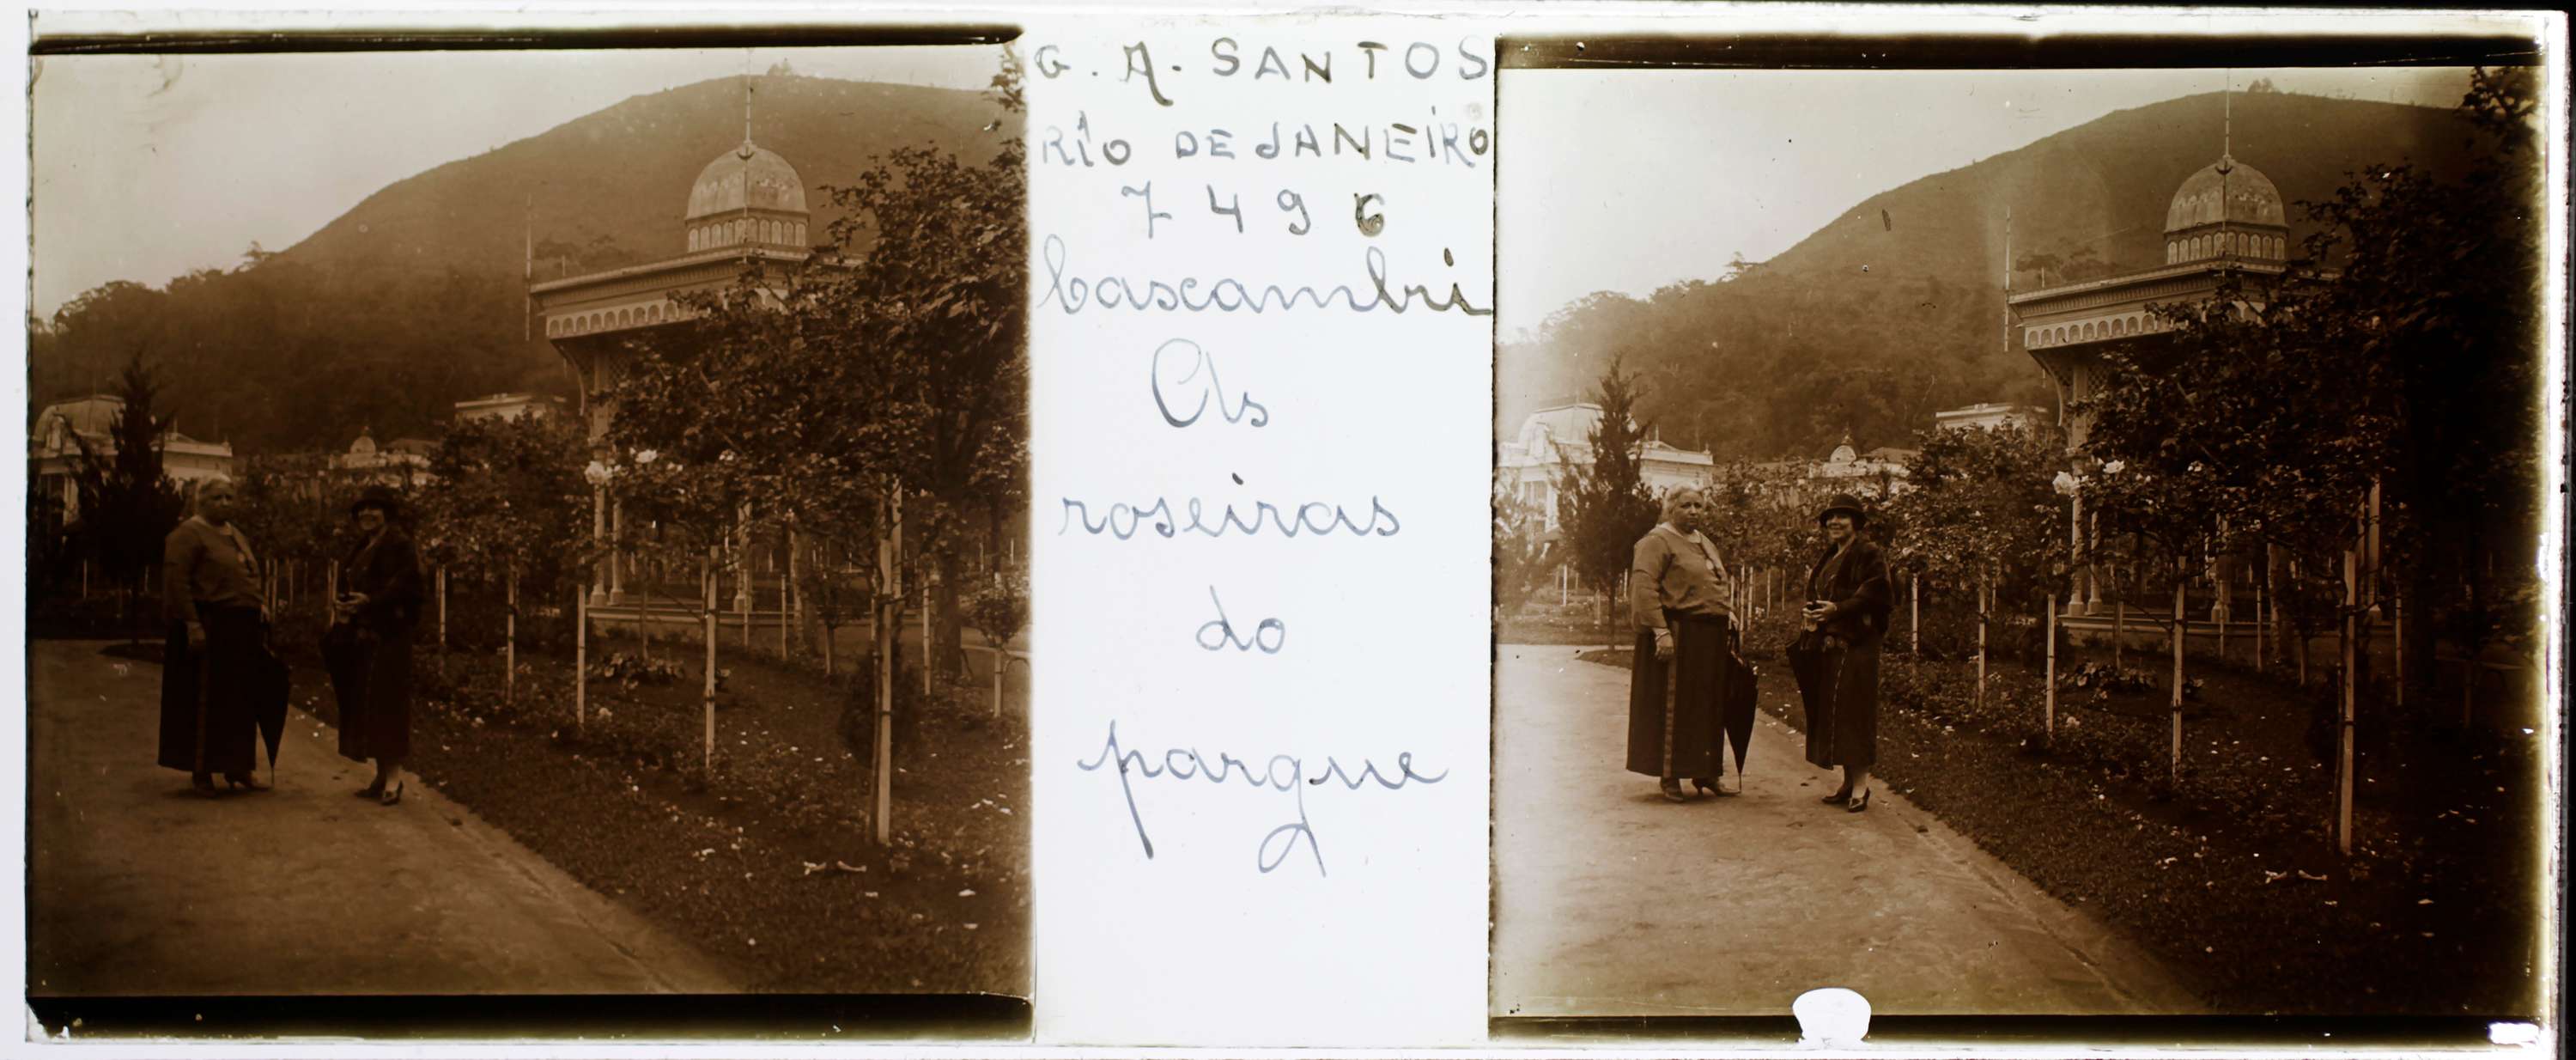 G. A. SANTOS
RIO DE JANEIRO
7496
Caxambú
As
roseiras
do
parque